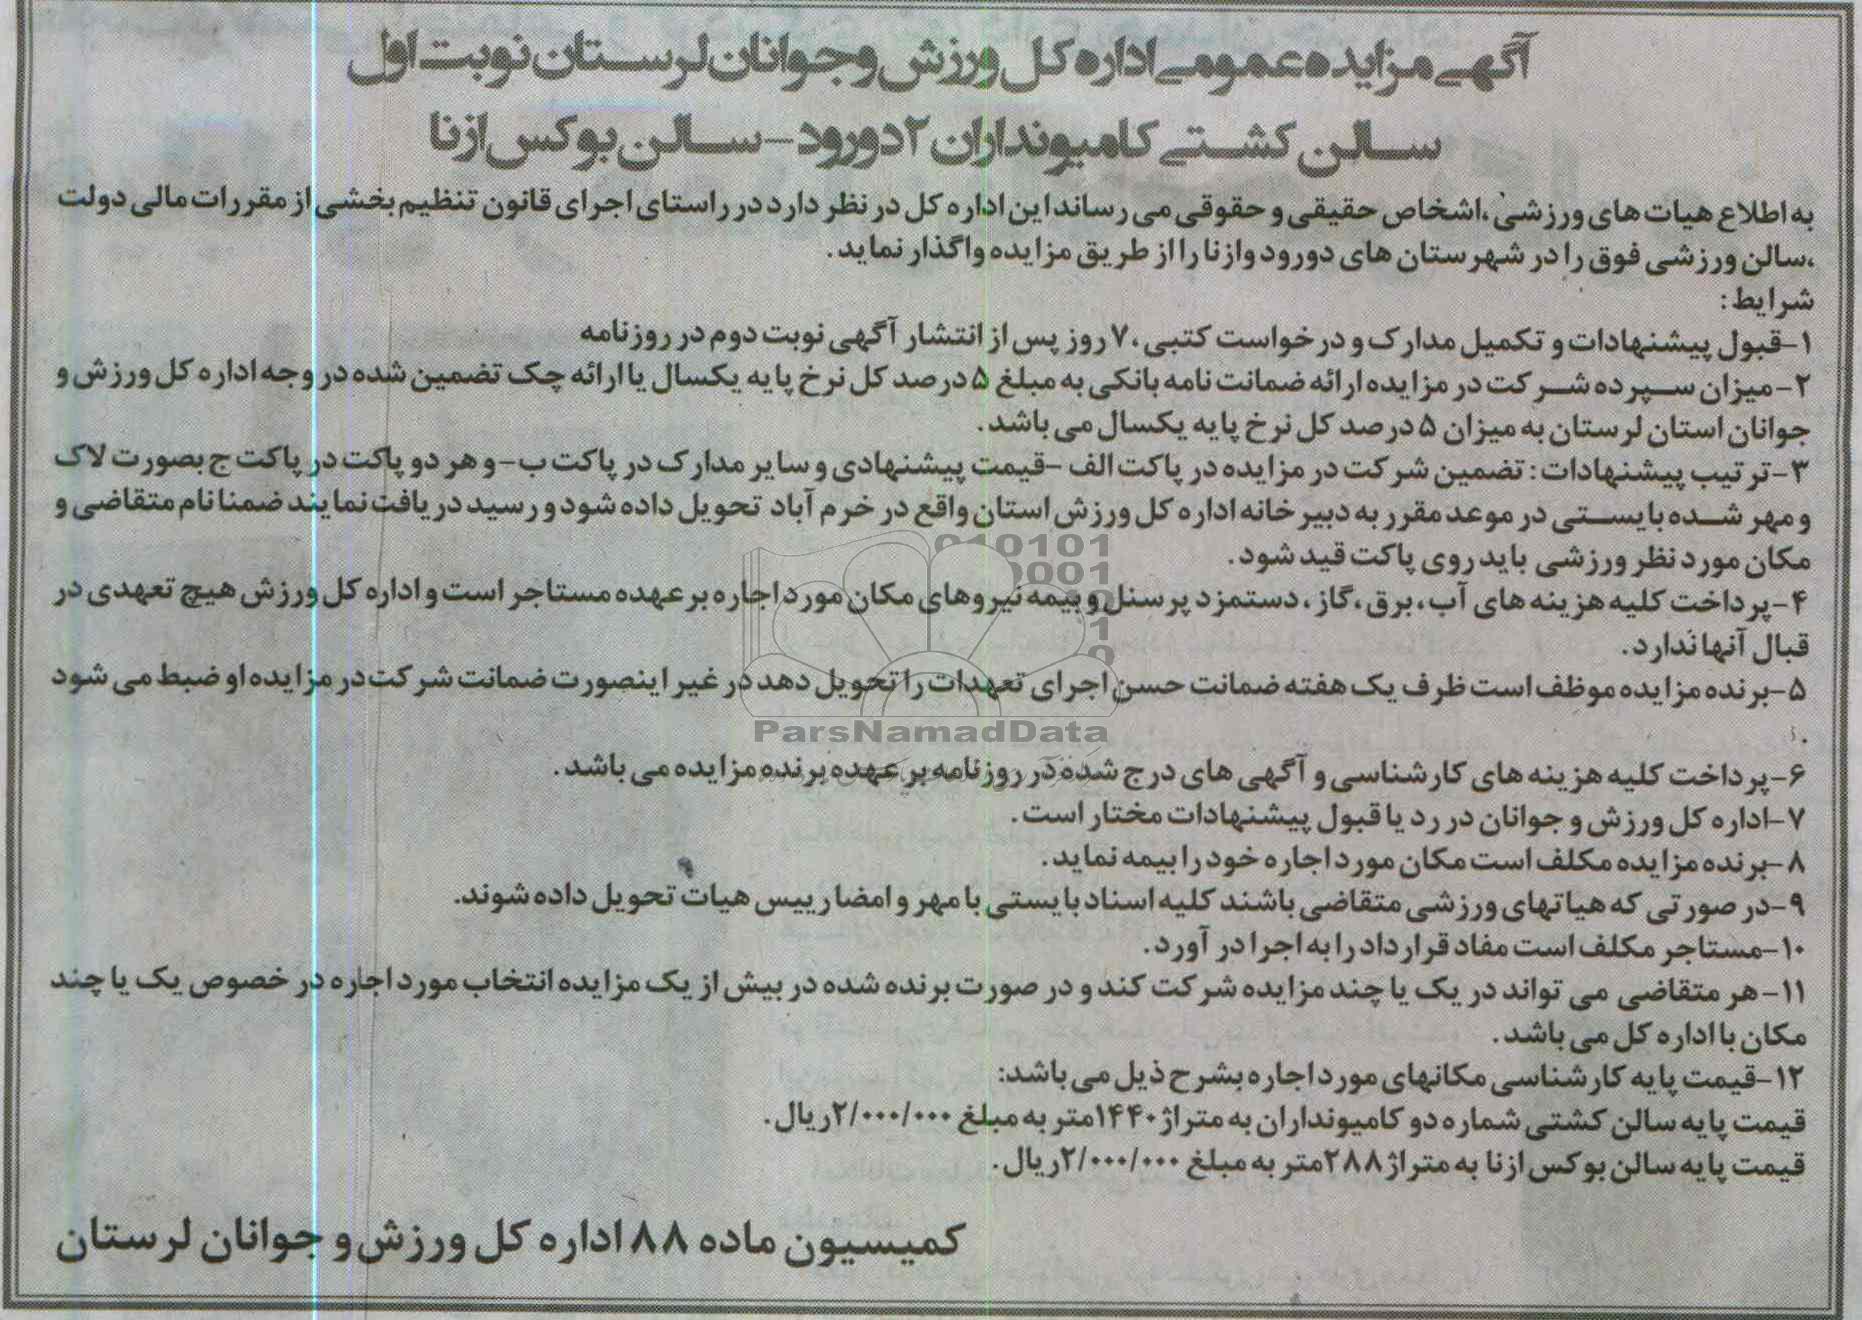 آگهی مزایده عمومی اداره کل ورزش و جوانان لرستان نوبت اول
سالن کشتی کامیونداران ۲ دورود - سالن بوکس ازنا
به اطلاع هیات های ورزشی ،اشخاص حقیقی و حقوقی می رساند این اداره کل در نظر دارد در راستای اجرای قانون تنظیم بخشی از مقررات مالی دولت
،سالن ورزشی فوق را در شهرستان های دورود وازنا را از طریق مزایده واگذار نماید.
شرایط:
۱-قبول پیشنهادات و تکمیل مدارک و درخواست کتبی ،۷ روز پس از انتشار آگهی نوبت دوم در روزنامه
۲-میزان سپرده شرکت در مزایده ارائه ضمانت نامه بانکی به مبلغ ۵ درصد کل نرخ پایه یکسال یا ارائه چک تضمین شده در وجه اداره کل ورزش و
جوانان استان لرستان به میزان ۵ درصد کل نرخ پایه یکسال می باشد.
۳-ترتیب پیشنهادات: تضمین شرکت در مزایده در پاکت الف -قیمت پیشنهادی و سایر مدارک در پاکت ب- و هر دو پاکت در پاکت ج بصورت لاک
و مهر شده بایستی در موعد مقرر به دبیرخانه اداره کل ورزش استان واقع در خرم آباد تحویل داده شود و رسید دریافت نمایند ضمنا نام متقاضی و
مکان مورد نظر ورزشی باید روی پاکت قید شود.
۴-پرداخت کلیه هزینه های آب، برق،گاز، دستمزد پرسنل و بیمه نیروهای مکان مورد اجاره بر عهده مستاجر است و اداره کل ورزش هیچ تعهدی در
قبال آنها ندارد.
۵-برنده مزایده موظف است ظرف یک هفته ضمانت حسن اجرای تعهدات را تحویل دهد در غیر اینصورت ضمانت شرکت در مزایده او ضبط می شود
.
۶-پرداخت کلیه هزینه های کارشناسی و آگهی های درج شده در روزنامه بر عهده برنده مزایده می باشد.
۷-اداره کل ورزش و جوانان در رد یا قبول پیشنهادات مختار است.
۸-برنده مزایده مکلف است مکان مورد اجاره خود را بیمه نماید.
۹-در صورتی که هیاتهای ورزشی متقاضی باشند کلیه اسناد بایستی با مهر و امضا رییس هیات تحویل داده شوند.
۱۰-مستاجر مکلف است مفاد قرارداد را به اجرا در آورد.
۱۱-هر متقاضی می تواند در یک یا چند مزایده شرکت کند و در صورت برنده شده در بیش از یک مزایده انتخاب مورد اجاره در خصوص یک یا چند
مکان با اداره کل می باشد.
۱۲-قیمت پایه کارشناسی مکانهای مورد اجاره بشرح ذیل می باشد:
قیمت پایه سالن کشتی شماره دو کامیونداران به متراژ ۱۴۴۰متر به مبلغ ۲/۰۰۰/۰۰۰ریال.
قیمت پایه سالن بوکس ازنا به متراژ ۲۸۸متر به مبلغ ۲/۰۰۰/۰۰۰ریال.
کمیسیون ماده ۸۸ اداره کل ورزش و جوانان لرستان
ParsNamadData